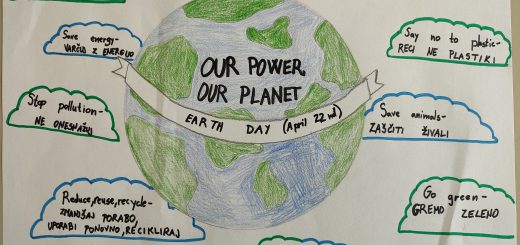 Save energy-
VARČUJ Z ENERGIJO
Say no to plastic-
RECI NE PLASTIKI
OUR POWER
OUR PLANET
EARTH DAY (April 22nd)
Stop pollution-
NE ONESNAŽUJ
Save animals-
ZAŠČITI ŽIVALI
Reduce, reuse, recycle-
ZMANJŠAJ PORABO,
UPORABI PONOVNO, RECIKLIRAJ
Go green-
GREMO ZELENO